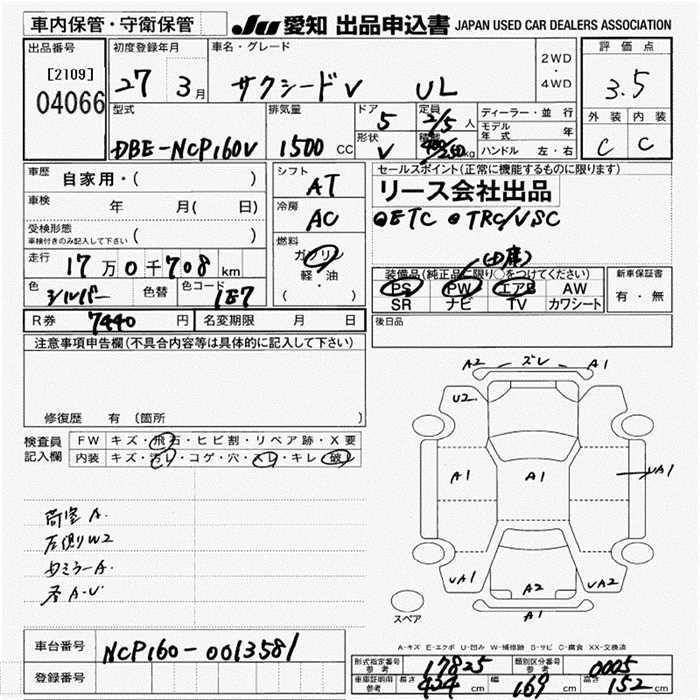 車内保管・守衛保管
JU 愛知 出品申込書 JAPAN USED CAR DEALERS ASSOCIATION
出品番号
[2109]
04066
初度登録年月
27 3月
車名・グレード
サクシードV UL
2WD
・
4WD
評価点
3.5
外装 内装
C C
型式
DBE-NCP160V
排気量
1500 CC
ドア
5
形状
V
定員
2/5 人
積載
400/250 kg
ディーラー・並行
モデル年式 年
ハンドル 左・右
車歴 自家用・( )
車検 年 月( 日)
受検形態
車検付きのみ記入して下さい ( )
走行 17万0千708km
色 シルバー 色替 色コード 1E7
シフト
AT
冷房
AC
燃料
ガソリン
軽・油
( )
セールスポイント(正常に機能するものに限ります)
リース会社出品
●ETC ●TRC/VSC
装備品(純正品に限り○をつけてください)
PS PW エアB AW
SR ナビ TV カワシート
新車保証書
有・無
R券 7440 円 名変期限 月 日
後日品
注意事項申告欄(不具合内容等は具体的に記入して下さい)
修復歴 有 (箇所 )
検査員
記入欄
FW キズ・飛石・ヒビ割・リペア跡・X要
内装 キズ・汚レ・コゲ・穴・スレ・キレ・破レ
荷室 A.
左側り W2
内ミラーA.
A2 ズレ A1
U2
A1 A1 UA1
UA1 A2 UA2
A1
スペア
A-キズ E-エクボ U-凹み W-補修跡 S-サビ C-腐食 XX-交換済
車台番号 NCP160-0013581
登録番号
形式指定番号 参考 17825 類別区分番号 参考 0005
車庫証明用 参考 長さ 434 cm 幅 169 cm 高さ 152 cm